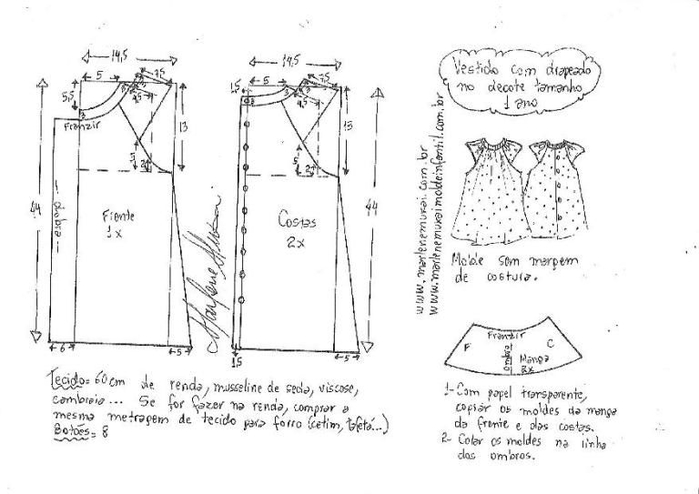 14,5
5
7,5
5,5
3
Franzir
13
44
dobra
5
2
Frente
1x
6
5
14,5
1,5
5
7,5
3
13
44
5
2
Costas
2x
1,5
5
Marlene Mukai
www.marlenemukai.com.br
www.marlenemukaimoldeinfantil.com.br
Vestido com drapeado
no decote tamanho
1 ano
Molde sem margem
de costura.
Franzir
F
C
ombro
Manga
2x
Tecido= 60cm de renda, musseline de seda, viscose,
cambraia... Se for fazer na renda, comprar a
mesma metragem de tecido para forro (cetim, tafetá...)
Botões= 8
1- Com papel transparente,
copiar os moldes da manga
da frente e das costas.
2- Colar os moldes na linha
dos ombros.